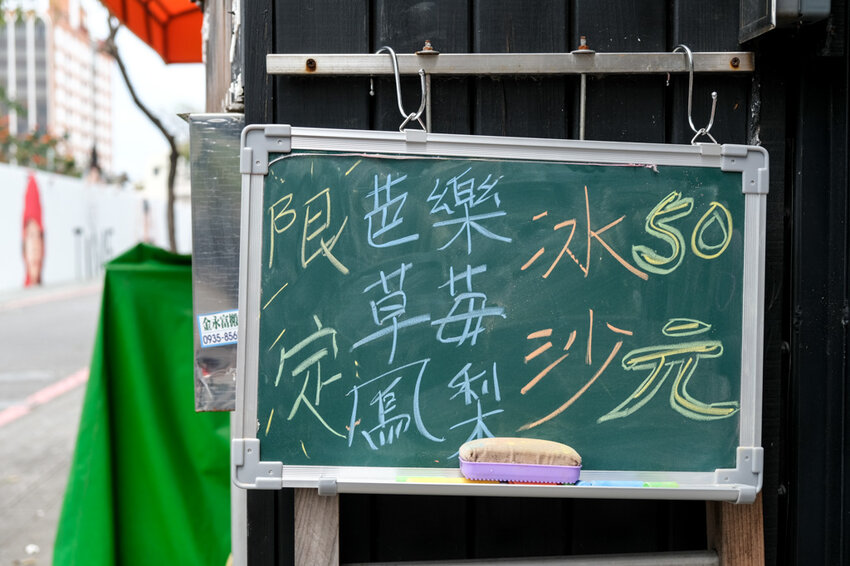 限定
芭樂
草莓
鳳梨
冰沙
50元
金永富
0935-856